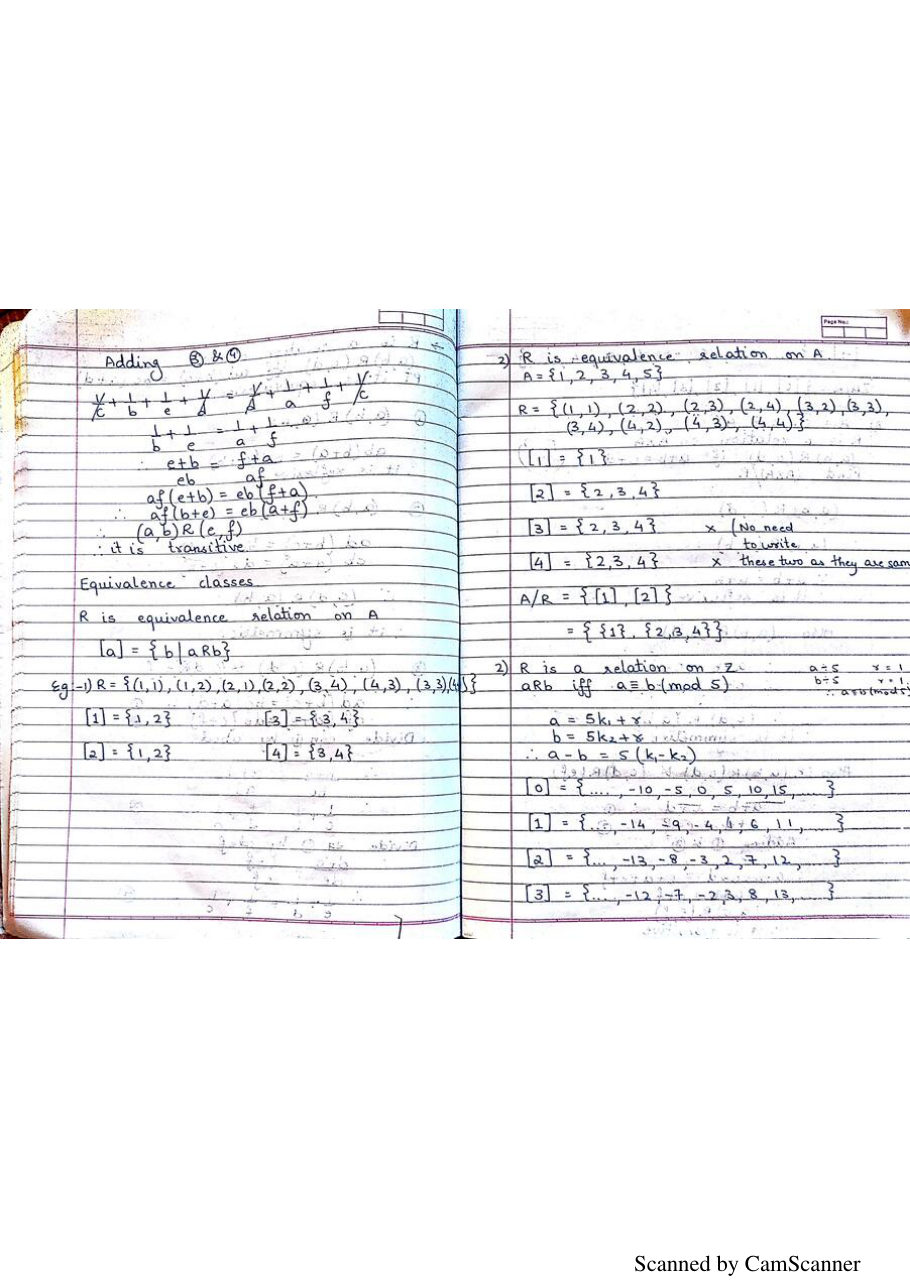 Adding ③ & ④
1/c + 1/b + 1/e + 1/d = 1/d + 1/a + 1/f + 1/c
1/b + 1/e = 1/a + 1/f
∴ e+b/eb = f+a/af
af(e+b) = eb(f+a)
∴ af(b+e) = eb(a+f)
∴ (a,b)R(e,f)
∴ it is transitive
Equivalence classes
R is equivalence relation on A
[a] = {b | aRb}
Eg:-1) R = {(1,1), (1,2), (2,1), (2,2), (3,4), (4,3), (3,3)(4,4)}
[1] = {1,2} [3] = {3,4}
[2] = {1,2} [4] = {3,4}
Page No.:
2) R is equivalence relation on A
A = {1,2,3,4,5}
R = {(1,1), (2,2), (2,3), (2,4), (3,2), (3,3),
(3,4), (4,2), (4,3), (4,4)}
[1] = {1}
[2] = {2,3,4}
[3] = {2,3,4} x (No need
to write
[4] = {2,3,4} x these two as they are sam
A/R = {[1], [2]}
= {{1}, {2,3,4}}
2) R is a relation on Z a÷5 r=1
aRb iff a≡b(mod 5) b÷5 r=1
∴ a≡b(mod 5)
a = 5k₁+r
b = 5k₂+r
∴ a-b = 5(k₁-k₂)
[0] = {...., -10, -5, 0, 5, 10, 15, .... }
[1] = {..., -14, -9, -4, 1, 6, 11, .... }
[2] = {..., -13, -8, -3, 2, 7, 12, .... }
[3] = {...., -12, -7, -2, 3, 8, 13, .... }
Scanned by CamScanner